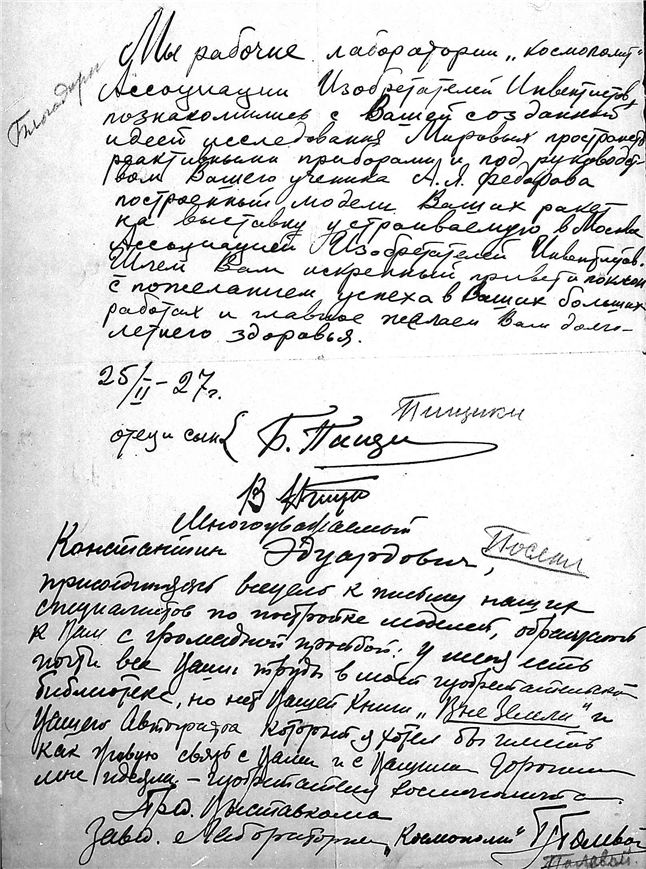 Мы рабочие лаборатории „Космополит"
Благодари
Ассоциации Изобретателей Инвентистов,
познакомились с Вашей созданной
идеей исследования Мировых пространств
реактивными приборами и под руководст-
вом Вашего ученика А.Я. Федорова
построенный модели Ваших ракет
на выставку устраиваемую в Москве
Ассоциацией Изобретателей Инвентистов.
Шлем Вам искренный привет и поклон
с пожеланием успеха в Ваших больших
работах и главное желаем Вам долго-
летнего здоровья.
25/II-27г.
Пищики
отец и сын { Б. Пищи
В
Многоуважаемый
Константин Эдуардович,
Послал
присоединяясь вцело к письму наших
специалистов по постройке моделей, обращаюсь
к Вам с громадной просьбой: у меня есть
почти все Ваши труды в моей изобретательской
библиотеке, но нет Вашей Книги „Вне Земли" и
Вашего Автографа который я хотел бы иметь
как живую связь с Вами и с Вашими дорогими
мне идеями – изобретателя космополита.
Пред. Выставкома
Завед. Лабораторией „Космополит" Полевой
Полевой.